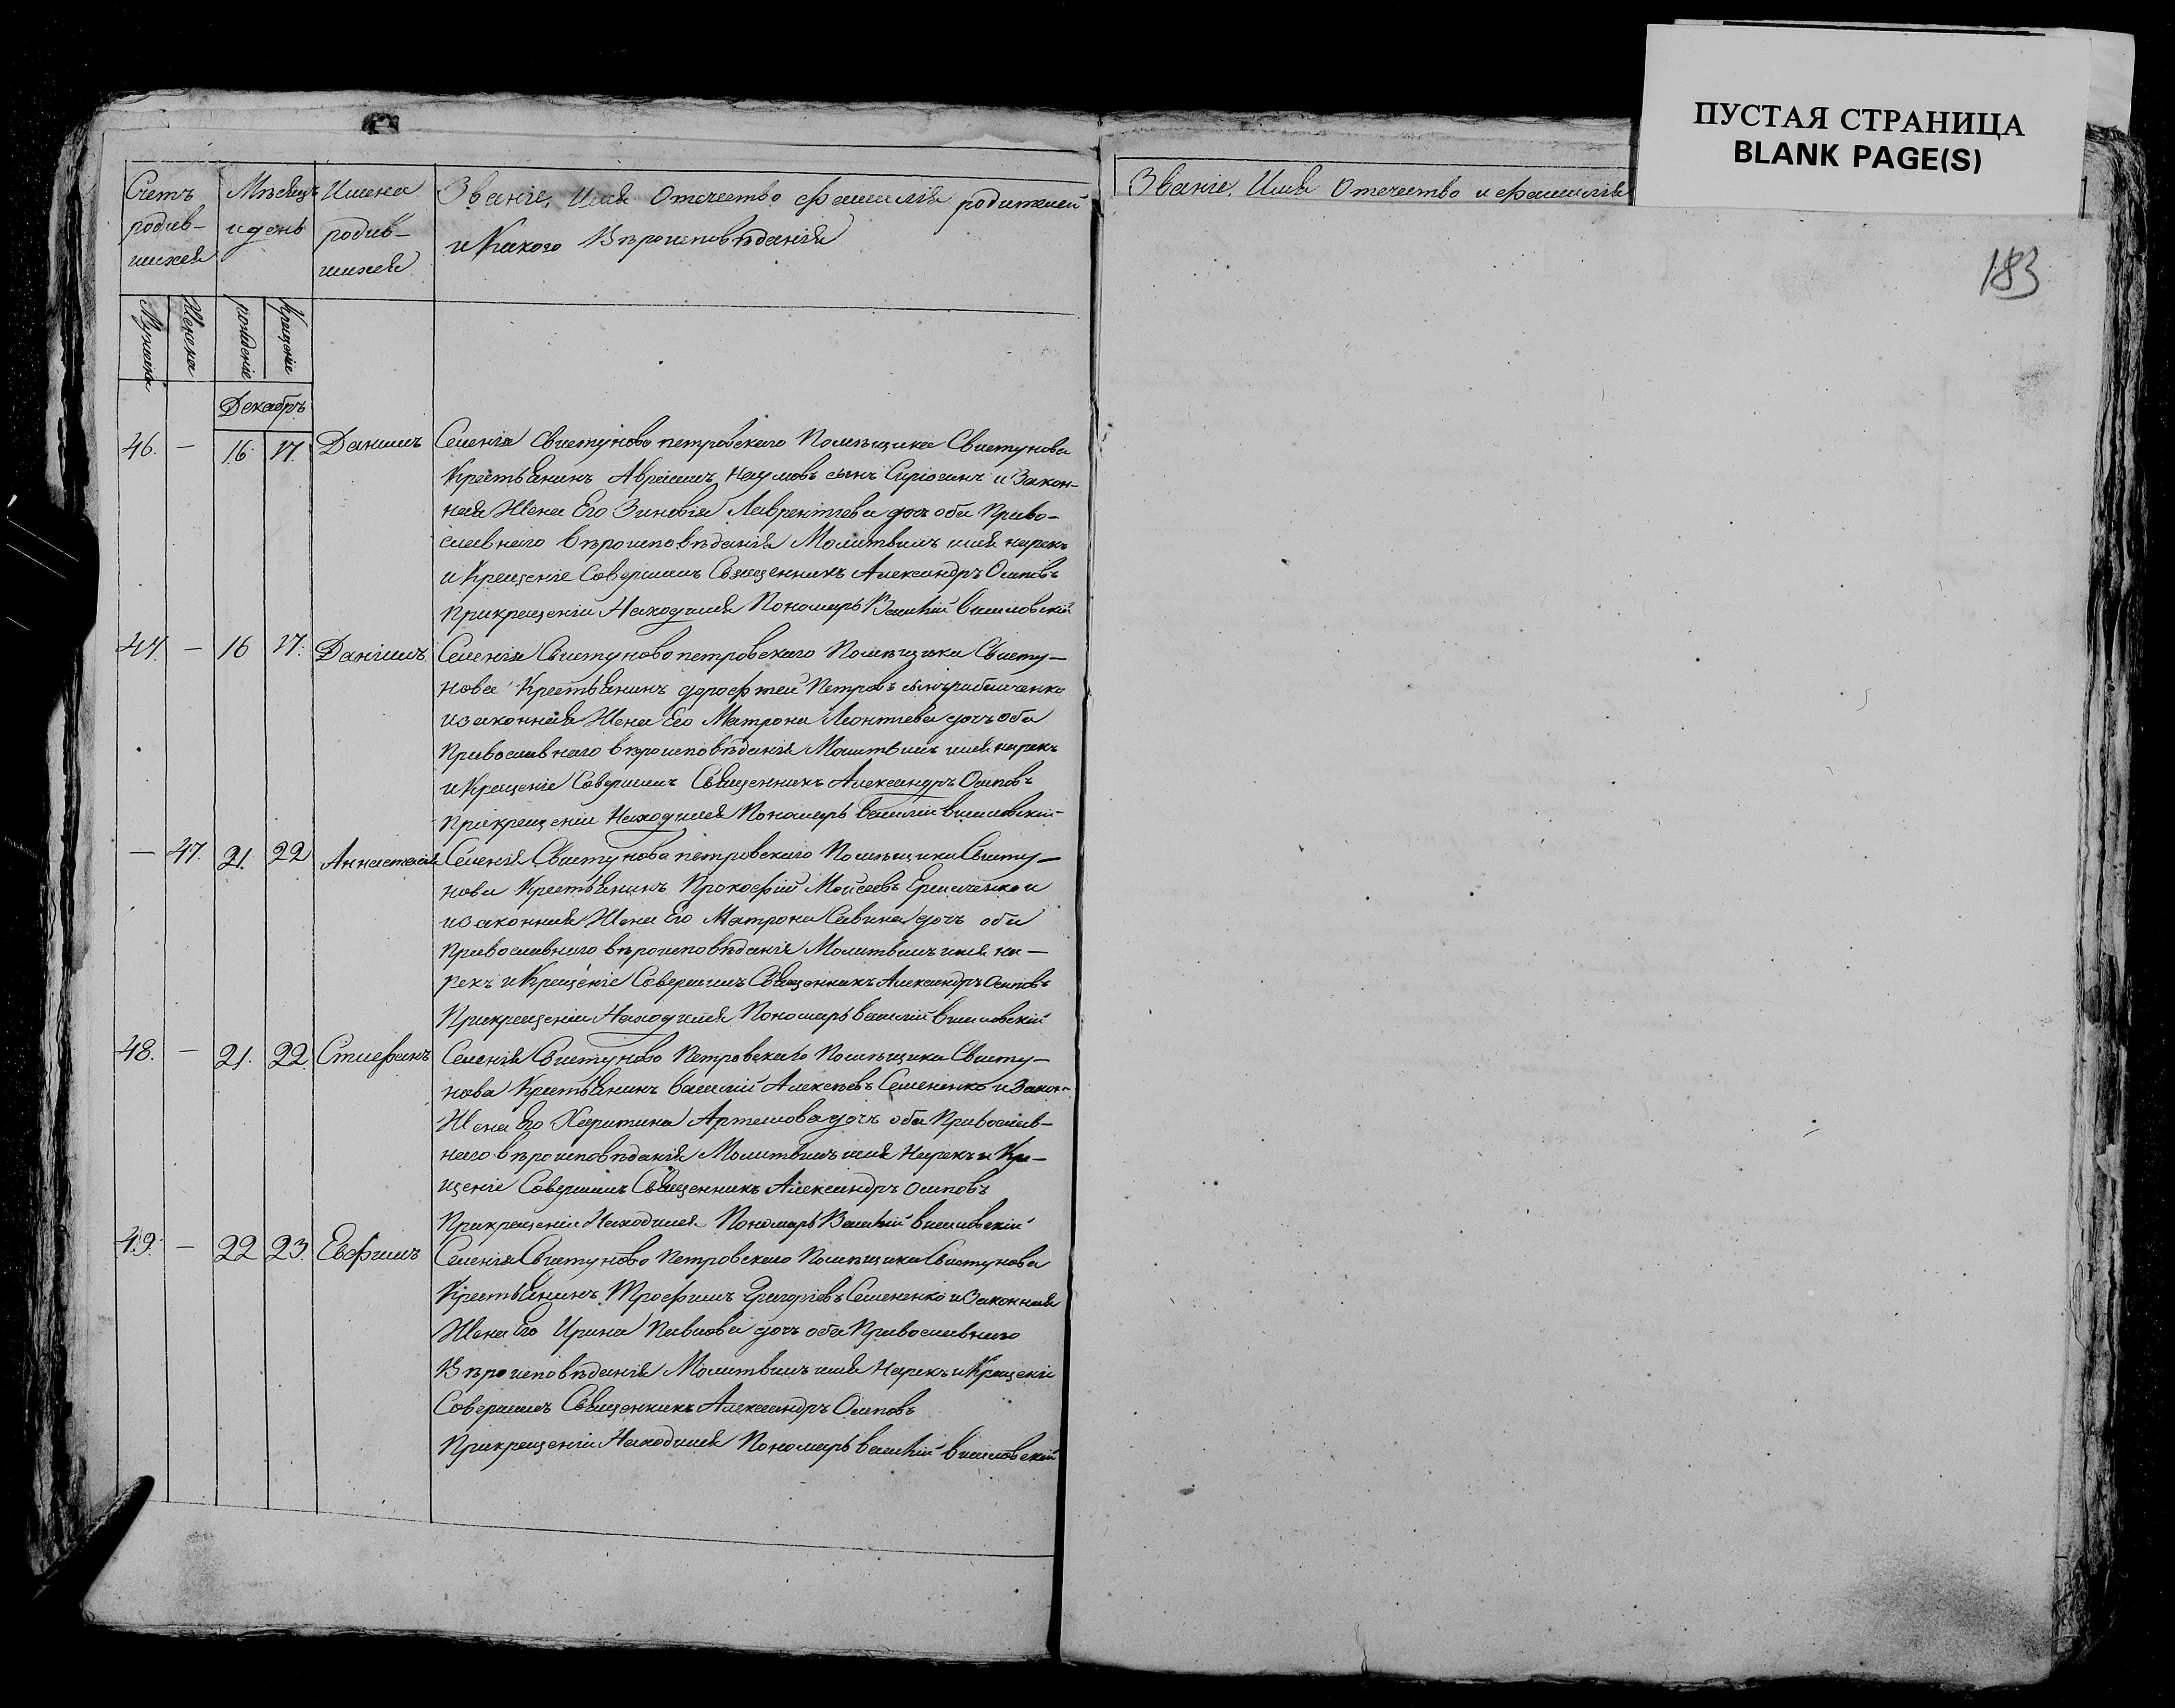 ПУСТАЯ СТРАНИЦА
BLANK PAGE(S)
183
Счетъ родив-шихся
Мѣсяцъ и день
Имена родив-шихся
Званіе, Имя Отечество фамилія родителей
и Какого Вѣроисповѣданія
Званіе, Имя Отечество и фамилія
Мужеска
Женска
рожденіе
Крещеніе
Декабрь
46. — 16. 17. Даніилъ Селенія Свистуново петровскаго Помѣщика Свистунова
Крестьянинъ Авраамъ Наумовъ сынъ и Закон-
ная Жена Его Зиновія Лаврентіева дочь оба Право-
славнаго вѣроисповѣданія Молитвилъ имя нарекъ
и Крещеніе Совершилъ Священникъ Александръ Осиповъ
Прикрещеніи Находился Пономарь Василій
47. — 16 17. Даніилъ Селенія Свистуново петровскаго Помѣщика Свисту-
нова Крестьянинъ дорофтей Петровъ сынъ
и законная Жена Его Матрона Леонтіева дочь оба
Православнаго вѣроисповѣданія Молитвилъ имя нарекъ
и Крещеніе Совершилъ Священникъ Александръ Осиповъ
Прикрещеніи Находился Пономарь Василій
— 47. 21. 22 Аннастасія Селенія Свистуново петровскаго Помѣщика Свисту-
нова Крестьянинъ Прокофій Моисеевъ Ермаченко и
и законная Жена Его Матрона Савина дочь оба
Православнаго вѣроисповѣданія Молитвилъ имя на-
рекъ и Крещеніе Совершилъ Священникъ Александръ Осиповъ
Прикрещеніи Находился Пономарь василій
48. — 21. 22. Стиефанъ Селенія Свистуново Петровскаго Помѣщика Свисту-
нова Крестьянинъ Василій Алексѣевъ Семененко и Закон-
Жена Его Харитина Артемова дочь оба Православ-
наго вѣроисповѣданія Молитвилъ имя Нарекъ и Кре-
щеніе Совершилъ Священникъ Александръ осиповъ
Прикрещеніи Находился Пономарь Василій
49. — 22 23. Евфимъ Селенія Свистуново Петровскаго Помѣщика Свистунова
Крестьянинъ Трофимъ Григоріевъ Семененко и Законная
Жена Его Ирина Павлова дочь оба Православнаго
Вѣроисповѣданія Молитвилъ имя Нарекъ и Крещеніе
Совершилъ Священникъ Александръ Осиповъ
Прикрещеніи Находился Пономарь василій